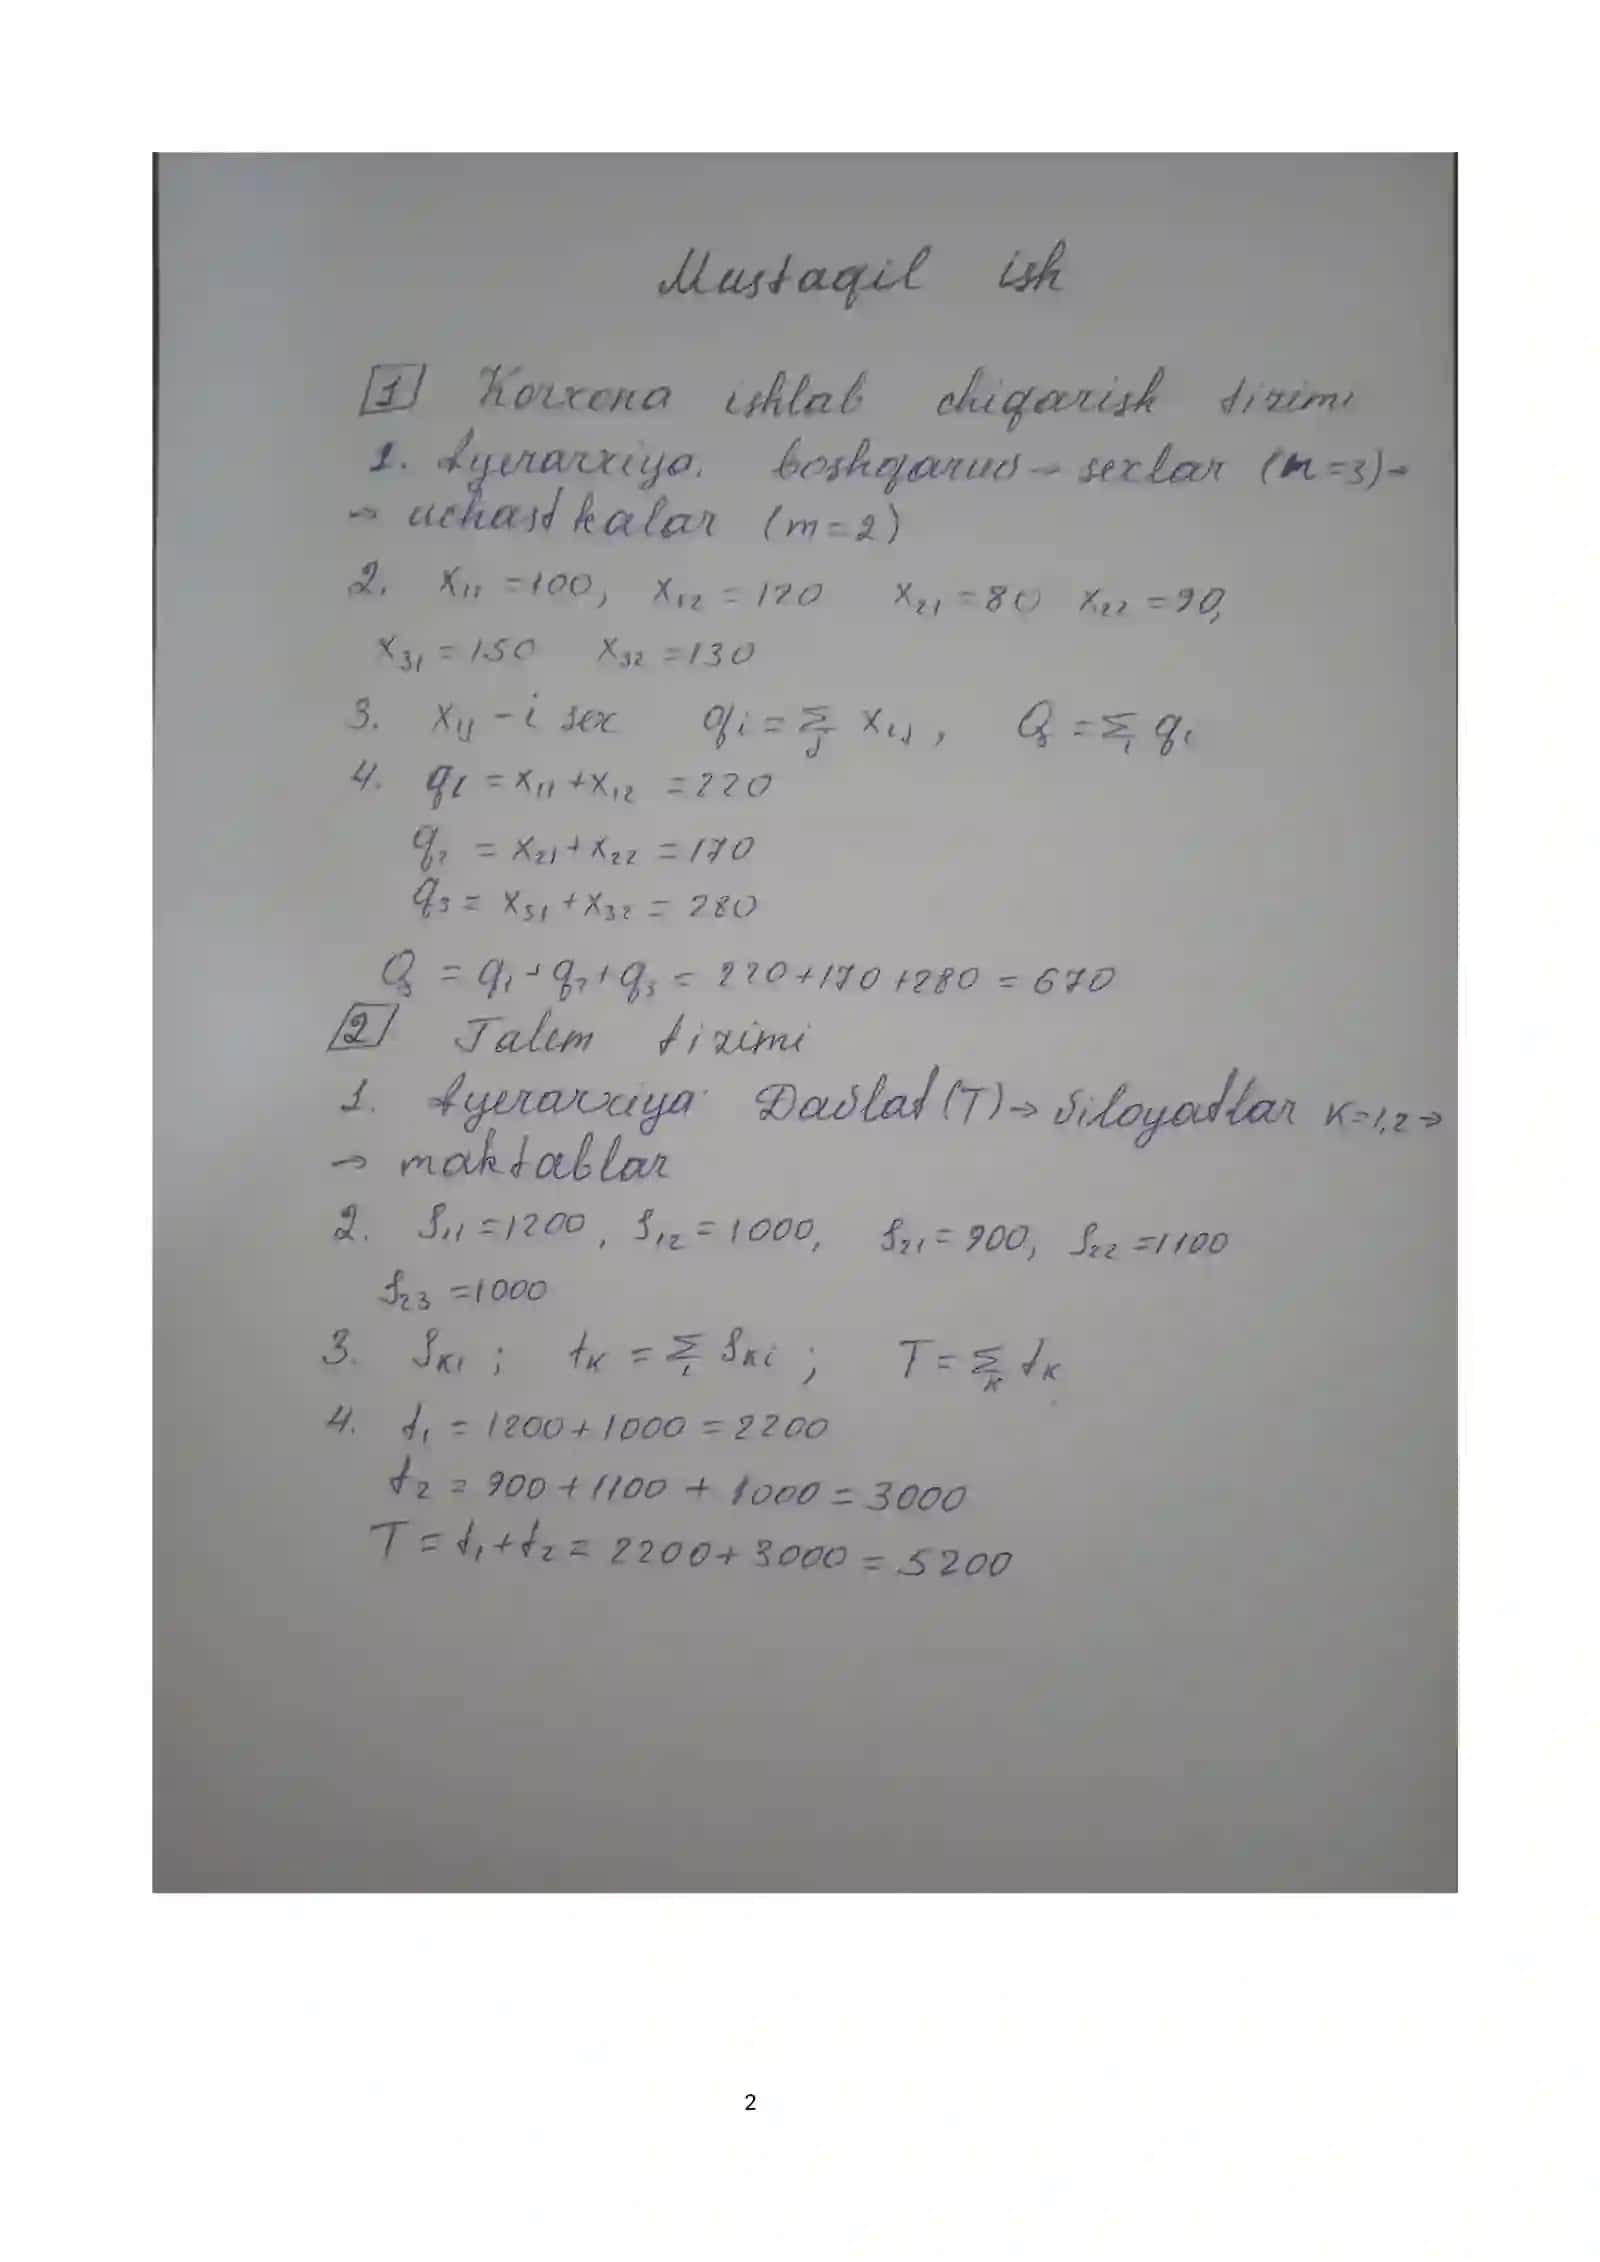 Mustaqil ish
1 Korxona ishlab chiqarish tizimi
1. Iyerarxiya. boshqaruv → sexlar (m=3) →
→ uchastkalar (m=2)
2. x₁₁ = 100, x₁₂ = 120 x₂₁ = 80 x₂₂ = 90,
x₃₁ = 150 x₃₂ = 130
3. xᵢⱼ - i sex qᵢ = Σⱼ xᵢⱼ, Q = Σᵢ qᵢ
4. q₁ = x₁₁ + x₁₂ = 220
q₂ = x₂₁ + x₂₂ = 170
q₃ = x₃₁ + x₃₂ = 280
Q = q₁ + q₂ + q₃ = 220 + 170 + 280 = 670
2 Talim tizimi
1. Iyerarxiya: Davlat (T) → Viloyatlar k=1,2 →
→ maktablar
2. S₁₁ = 1200, S₁₂ = 1000, S₂₁ = 900, S₂₂ = 1100
S₂₃ = 1000
3. Sₖᵢ ; tₖ = Σᵢ Sₖᵢ ; T = Σₖ tₖ
4. t₁ = 1200 + 1000 = 2200
t₂ = 900 + 1100 + 1000 = 3000
T = t₁ + t₂ = 2200 + 3000 = 5200
2